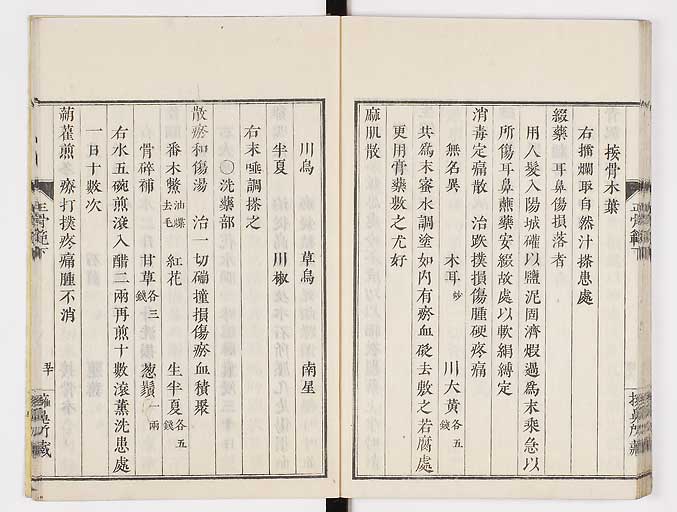 接骨木葉
右擂爛取自然汁搽患處
綴藥　耳鼻傷損落者
用人髮入陽城罐以鹽泥固濟煅過為末乘急以
所傷耳鼻蘸藥安綴故處以軟絹縛定
消毒定痛散　治跌撲損傷腫硬疼痛
無名異　木耳炒　川大黃各五錢
共為末蜜水調塗如內有瘀血砭去敷之若腐處
更用膏藥敷之尤好
麻肌散
川烏　草烏　南星
半夏　川椒
右末唾調搽之
〇洗藥部
散瘀和傷湯　治一切碰撞損傷瘀血積聚
番木鱉油煠去毛　紅花　生半夏各五錢
骨碎補　甘草各三錢　葱鬚一兩
右水五碗煎滾入醋二兩再煎十數滾薰洗患處
一日十數次
蒴藋煎　療打撲疼痛腫不消
正骨範下